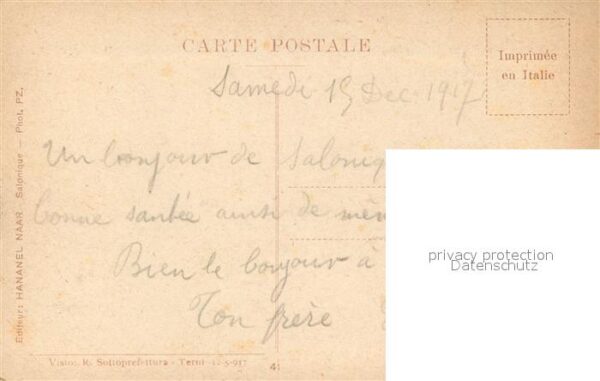 CARTE POSTALE
Imprimée
en Italie
Samedi 15 Dec. 1917
Un bonjour de Saloniq
bonne santée ainsi de mêm
Bien le bonjour à
Ton frère
privacy protection
Datenschutz
Editeur: HANANEL NAAR, Salonique — Phot. PZ.
Visto: R. Sottoprefettura - Terni
41